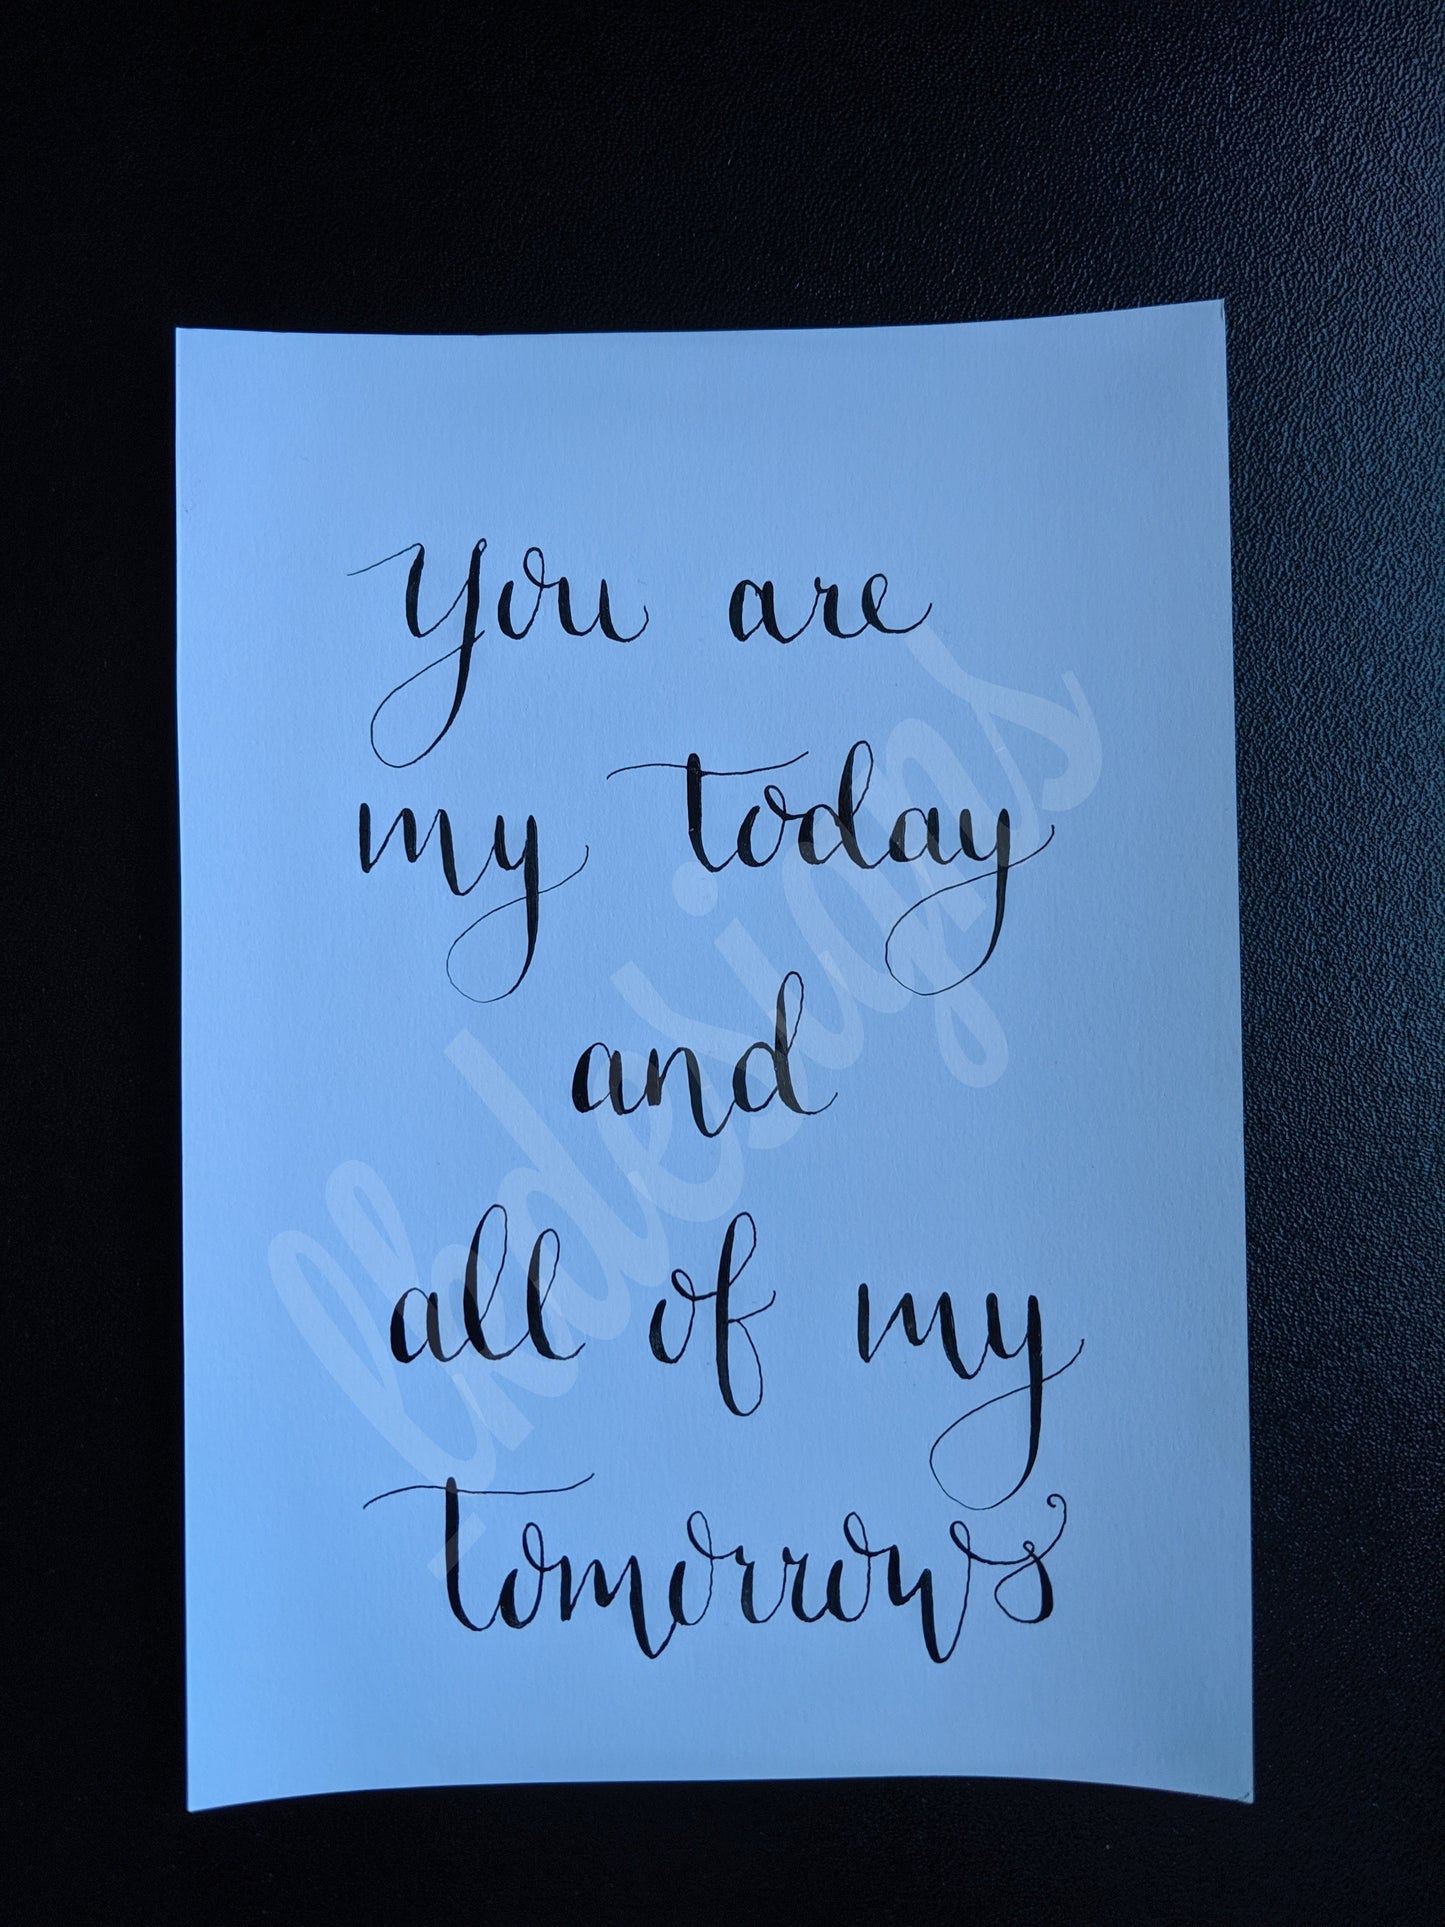 You are
my today
and
all of my
tomorrows